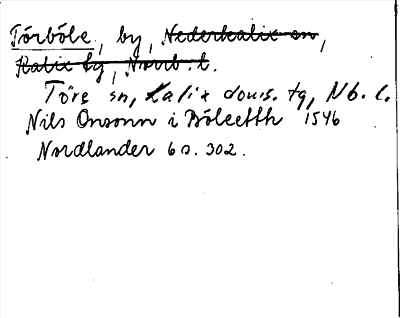 Törböle, by, Nederkalix sn,
Kalix tg, Norrb. l.
Töre sn, Kalix doms. tg, Nb. l.
Nils Onsonn i Bölectth 1546
Nordlander 6 s. 302.